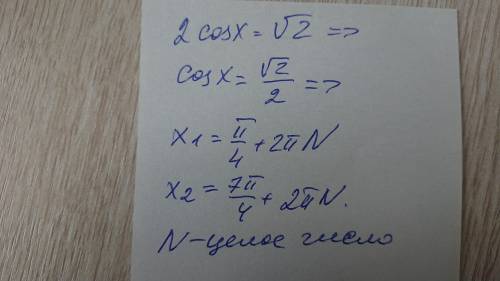 2 cosx = √2 =>
cosx = √2/2 =>
x1 = π/4 + 2πN
x2 = 7π/4 + 2πN.
N-целое число